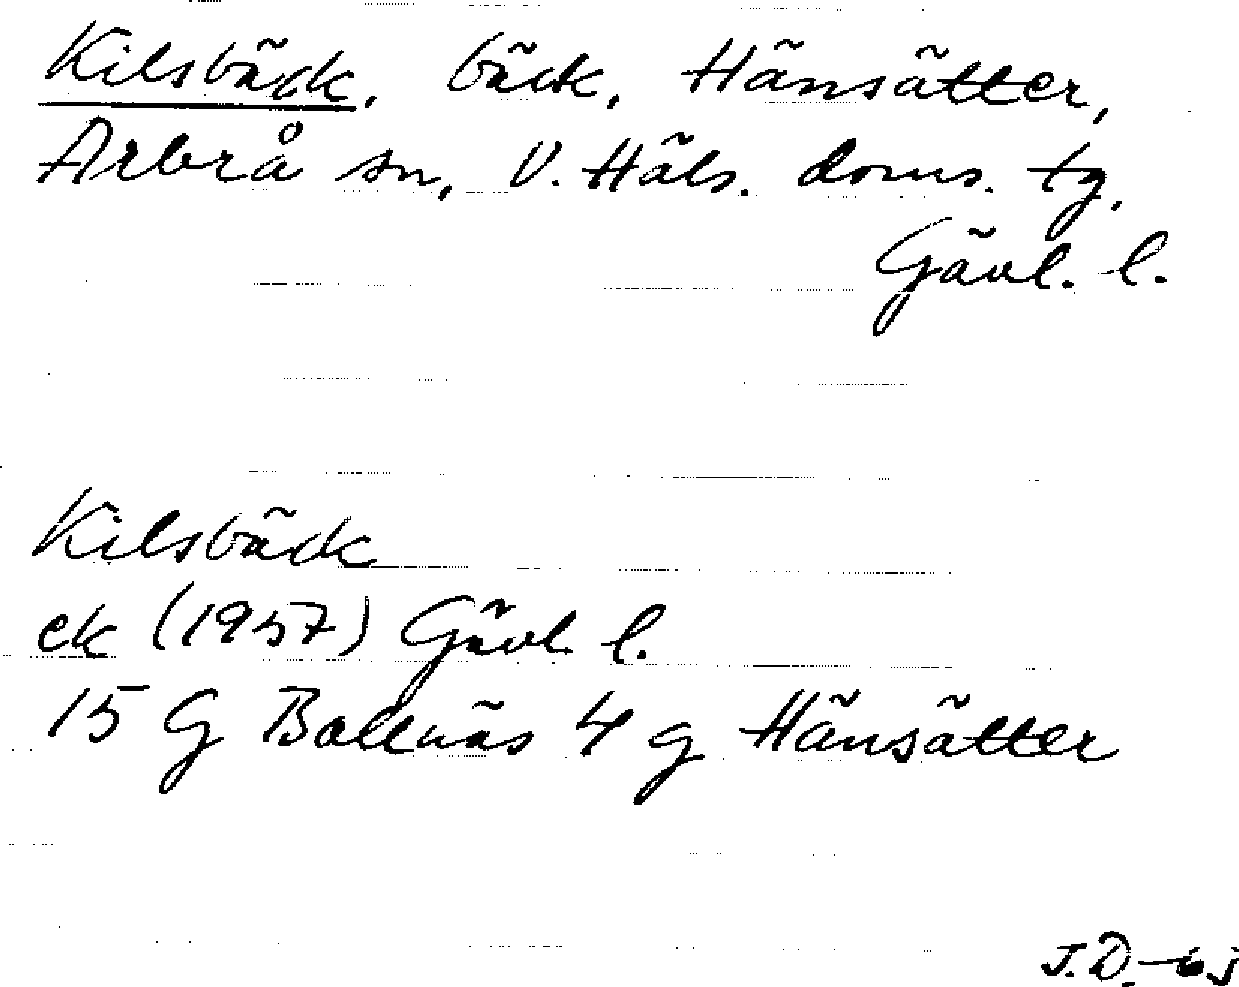 Kilsbäck, bäck, Hänsätter,
Arbrå sn, V. Häls. doms. tg,
Gävl. l.
Kilsbäck
ek (1957) Gävl. l.
15 G Bollnäs 4 g Hänsätter
J.D.